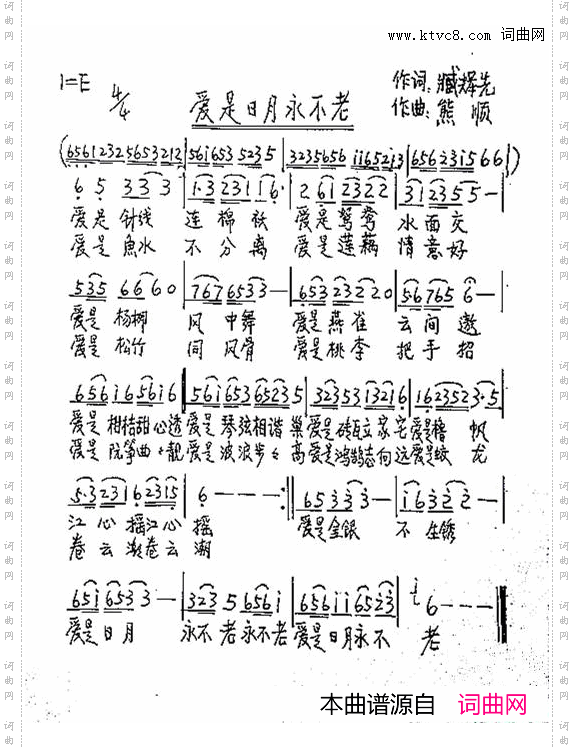 www.ktvc8.com 词曲网
1=E 4/4
爱是日月永不老
作词:臧辉先
作曲:熊 顺
(6561232565321 2 | 561653 5235 | 3235656 1165213 | 656231566 |)
6 5 3 3 3 | 1·3 231 1 6· | 2 61 2322 | 31 2355 — |
爱是针线 连棉袄 爱是鸳鸯 水面交
爱是鱼水 不分离 爱是莲藕 情意好
535 6660 | 767 6533 — | 653 232 20 | 56 765 6 — |
爱是 杨柳 风中舞 爱是燕雀 云间遨
爱是 松竹 同风骨 爱是桃李 把手招
6561 6561 6 | 561653 65235 | 323531321 6 | 1 623523·5 |
爱是柑桔甜心透爱是琴弦相谐巢爱是砖瓦立家宅爱是橹 帆
爱是阮筝曲靓爱是波浪步高爱是鸿鹄志向远爱是蛟 龙
5·3231 6 2315 | 6 — — — :| 65 3 3 3 — | 1 6 2 2 — |
江心摇江心摇 爱是金银 不生锈
卷云潮卷云潮
651 6533 — | 323 5 6561 | 65611 6523 | 6 — — — |
爱是日月 永不老永不老爱是日月永不 老
本曲谱源自 词曲网
词曲网